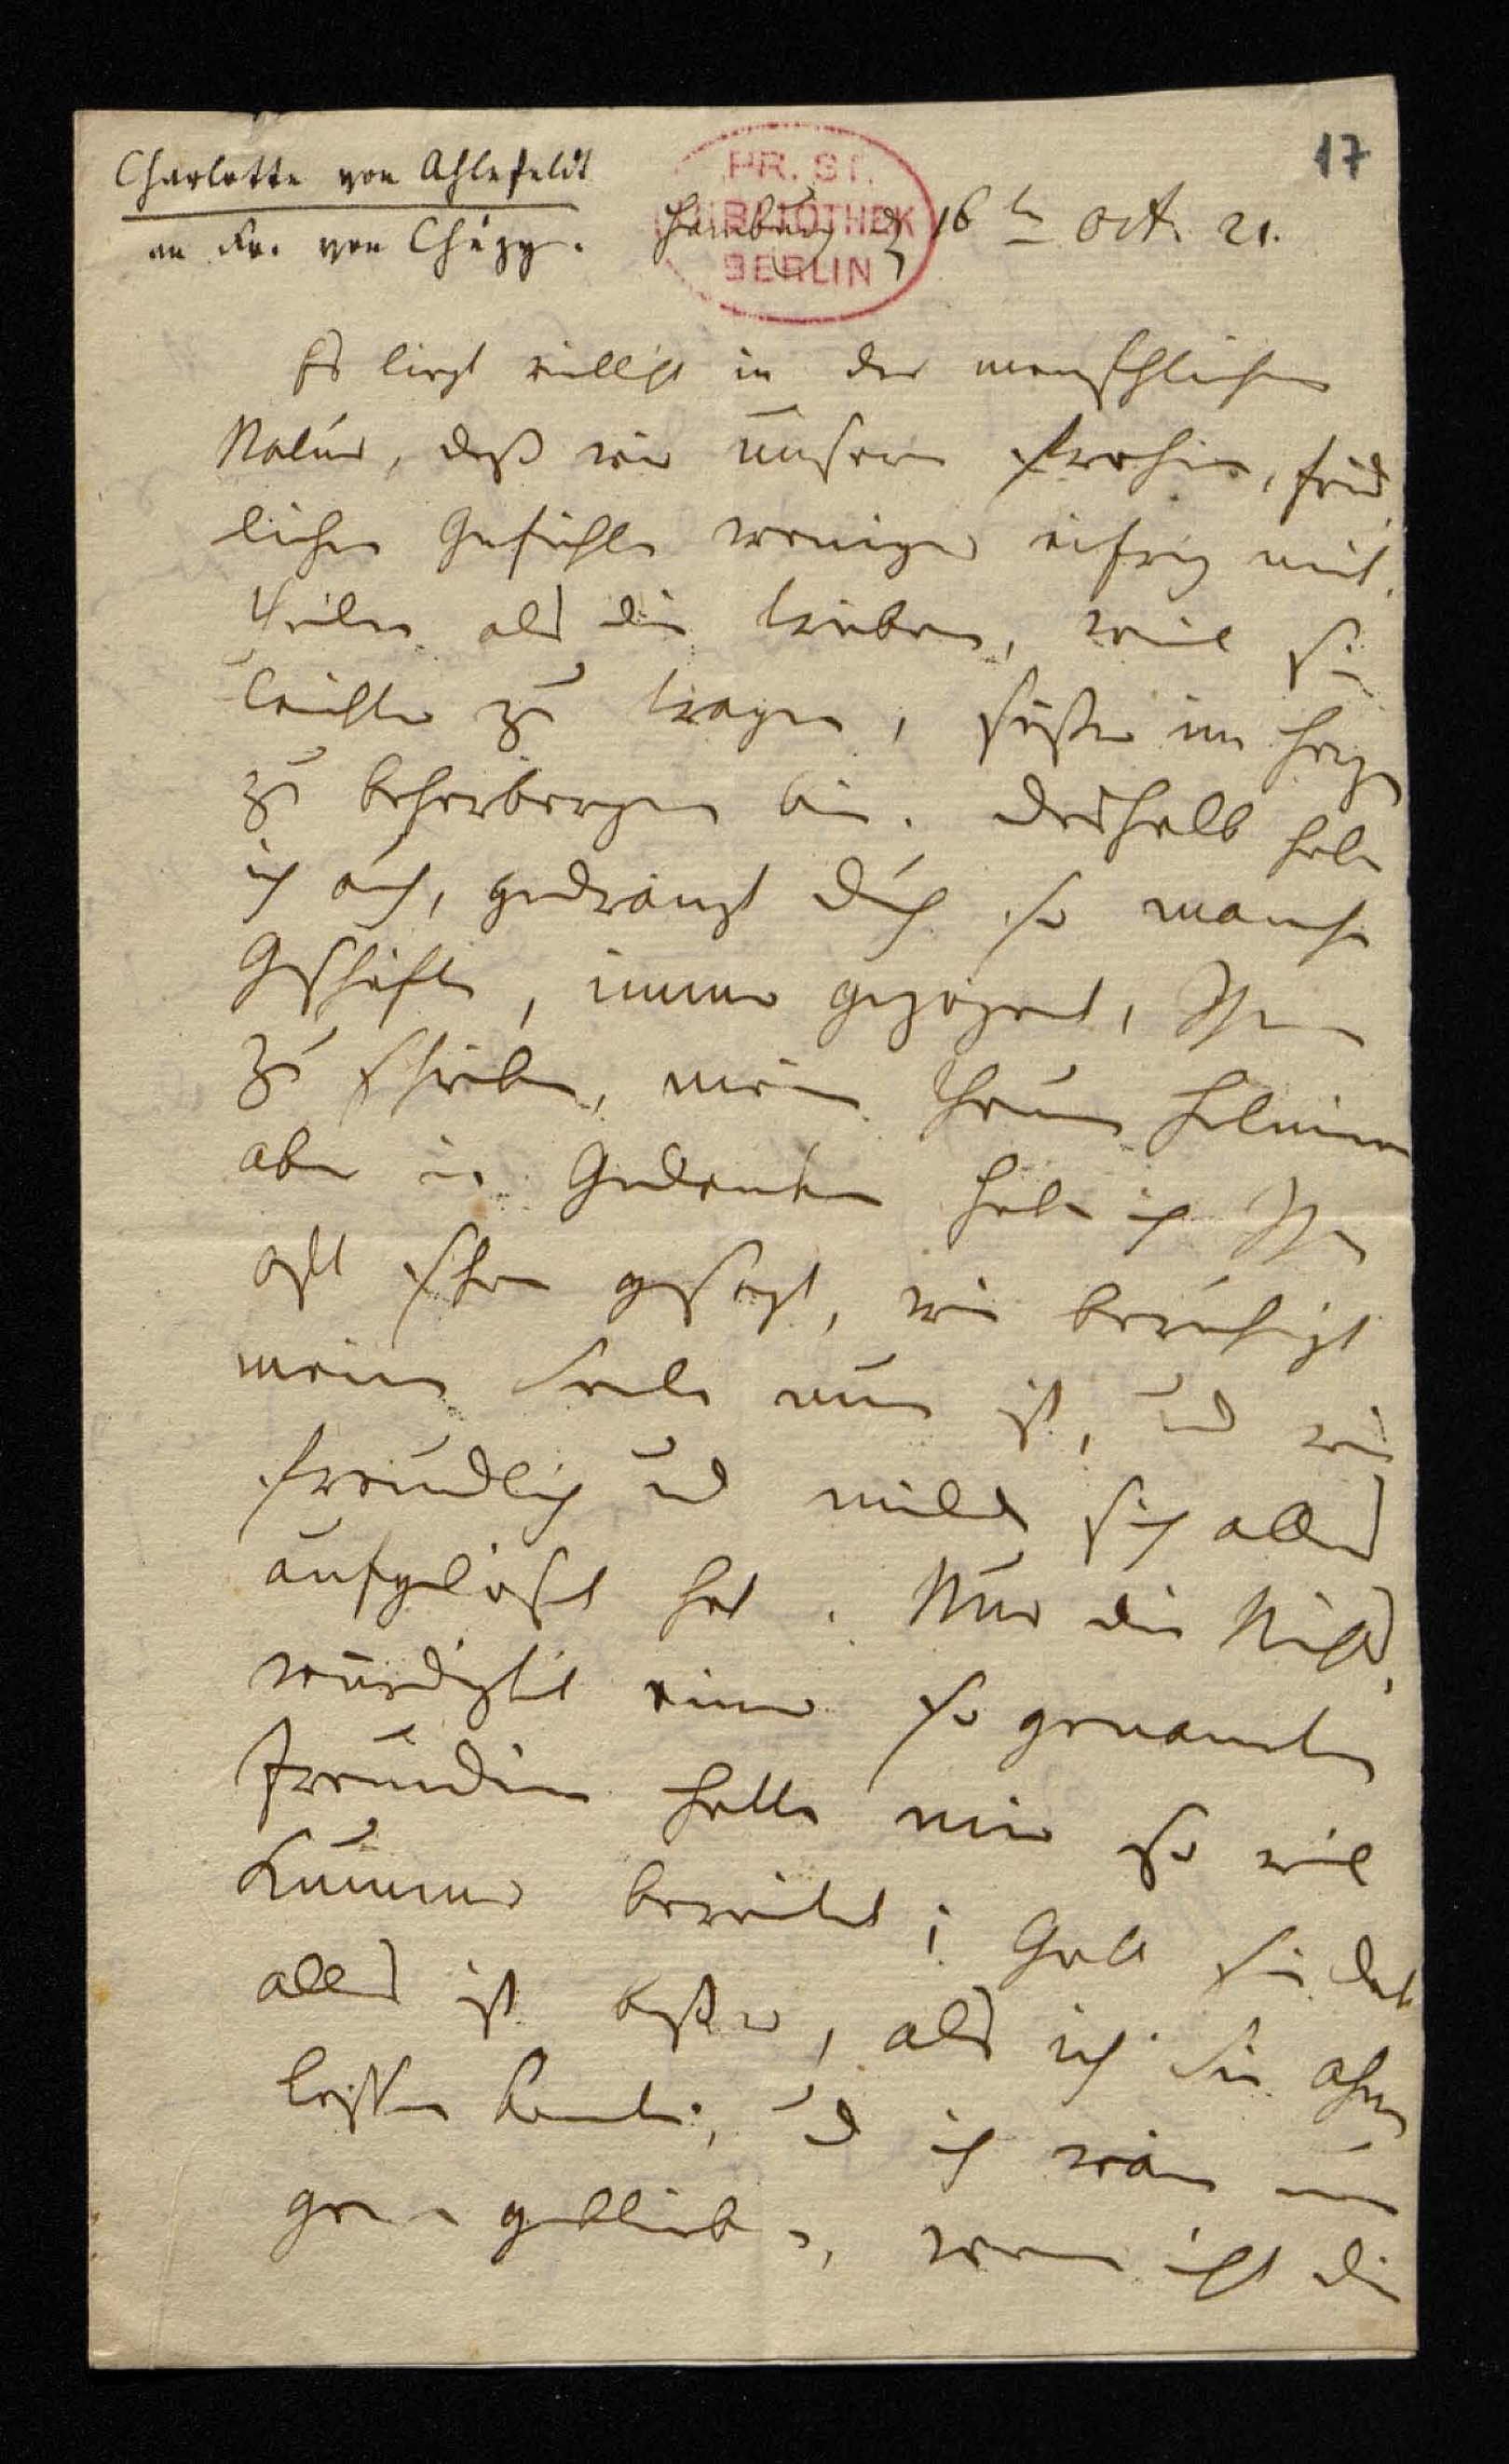 17
Charlotte von Ahlefeldt
an Fr. von Chézy.
PR. ST.
BIBLIOTHEK
BERLIN
Hamburg d 16t Oct. 21.
Es liegt vielleicht in der menschlichen
Natur, daß wir unsere frohen, fried
lichen Gefühle weniger eifrig mit
theilen als die trüben, weil sie
leichter zu tragen, süßer im Herzen
zu beherbergen sind. Deshalb habe
ich auch, gedrängt durch so manche
Geschäfte, immer gezögert, Ihnen
zu schreiben, meine theure Helmina
aber in Gedanken habe ich Ihnen
oft schon gesagt, wie beruhigt
meine Seele nun ist, und wie
freundlich und milde sich alles
aufgelößt hat. Nur die Nichts
würdigkeit einer so genannten
Freundin hatte mir so viel
Kummer bereitet; Gott sei Dank
alles ist besser, als ich Sie ahnen
lassen konnte, und ich wäre nun
gern geblieben, wenn nicht die